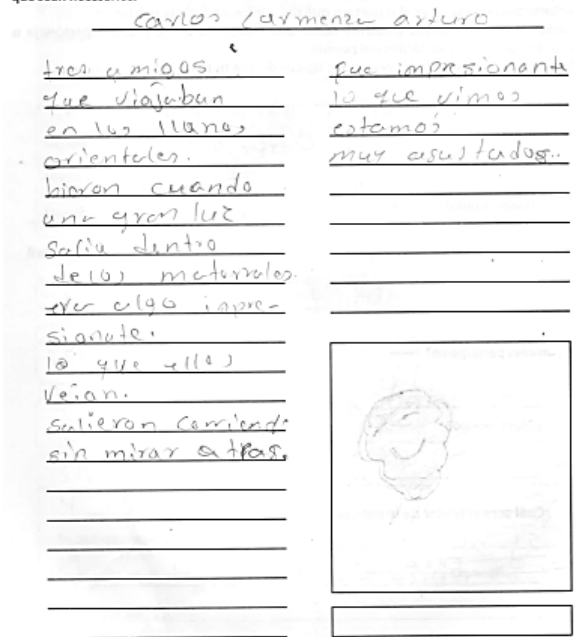 Carlos Carmenza arturo
tres amigos
que viajaban
en los llanos
orientales.
bieron cuando
una gran luz
salia dentro
de los matorrales.
era algo inpre-
sionate.
lo que ellos
veian.
salieron corriendo
sin mirar atras.
que impresionante
lo que vimos
estamos
muy asustados..